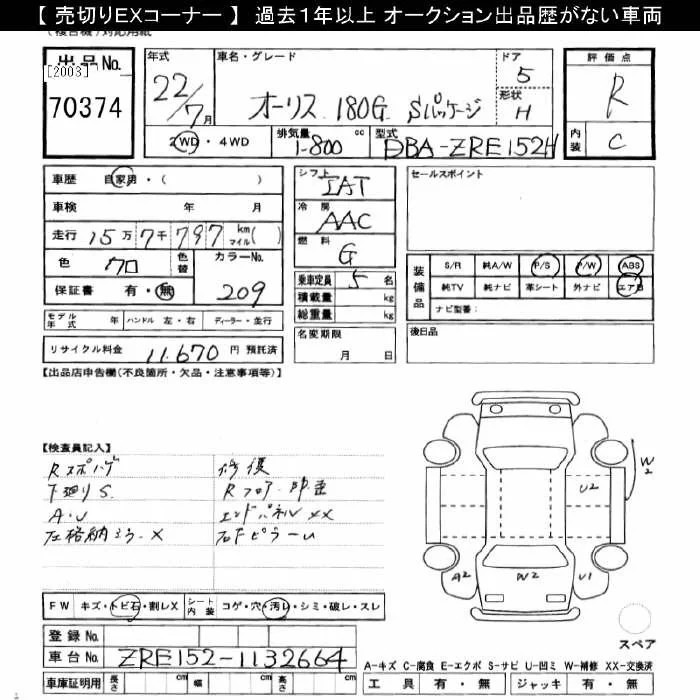 【 売切りEXコーナー 】 過去１年以上 オークション出品歴がない車両
(複合機)対応用紙
出品No.
[2003]
70374
年式
22/7月
車名・グレード
オーリス 180G Sパッケージ
ドア
5
形状
H
2WD・4WD
排気量
1-800 cc
型式
DBA-ZRE152H
評価点
R
内装
C
車歴 自家用・( )
車検 年 月
走行 15万7千797 km マイル( )
色 クロ 色替
カラーNo. 209
保証書 有・無
モデル年式 年 ハンドル 左・右 ディーラー・並行
リサイクル料金 11.670 円 預託済
シフト IAT
冷房 AAC
燃料 G
乗車定員 5 名
積載量 kg
総重量 kg
名変期限
月 日
セールスポイント
装備品
S/R 純A/W P/S P/W ABS
純TV 純ナビ 革シート 外ナビ エアB
ナビ型番:
後日品
【出品店申告欄(不良箇所・欠品・注意事項等)】
【検査員記入】
Rスポハゲ
下廻りS
A・U
左格納ミラーX
修復
Rフロア 凹歪
エンドパネルXX
右下ピラーU
W2
U2
A2
W2
U1
FW キズ・トビ石・割レX
シート内装 コゲ・穴・汚レ・シミ・破レ・スレ
スペア
登録No.
車台No. ZRE152-1132664
車庫証明用 長さ cm 幅 cm 高さ cm
A-キズ C-腐食 E-エクボ S-サビ U-凹ミ W-補修 XX-交換済
工具 有・無 ジャッキ 有・無